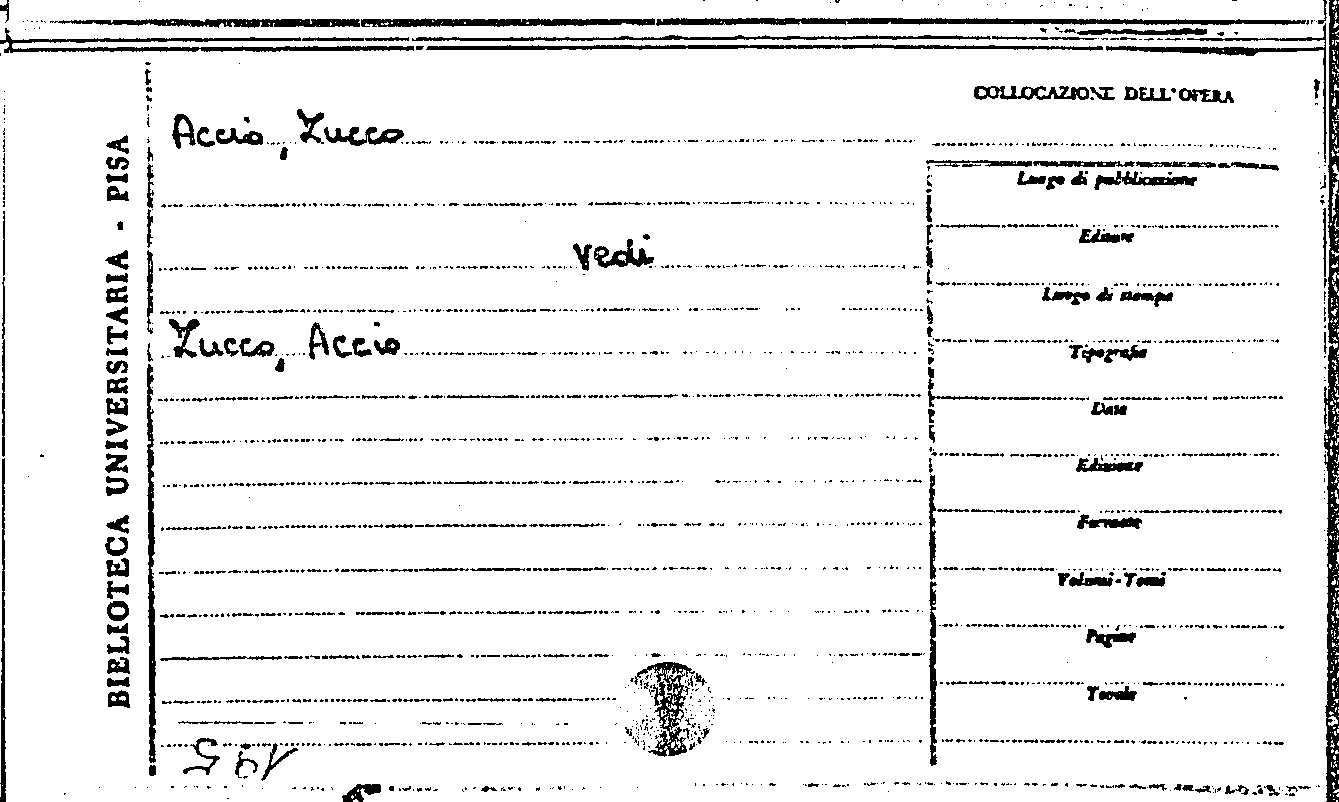 BIBLIOTECA UNIVERSITARIA - PISA
Accio, Zucco
vedi
Zucco, Accio
COLLOCAZIONE DELL'OPERA
Luogo di pubblicazione
Editore
Luogo di stampa
Tipografia
Data
Edizione
Formato
Volumi-Tomi
Pagine
Tavole